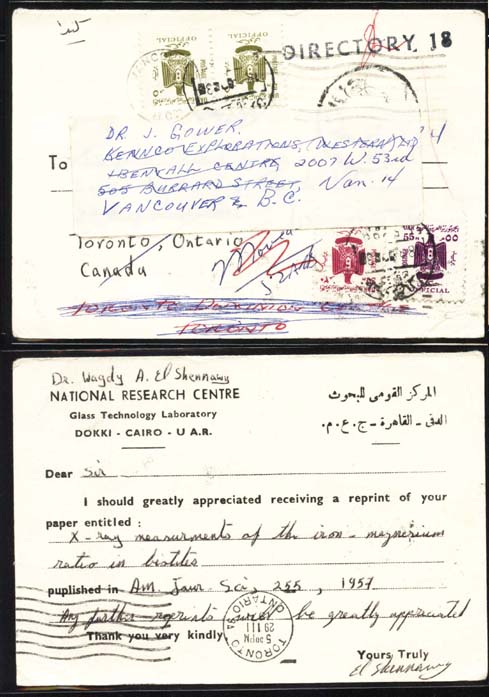 كندا
OFFICIAL
OFFICIAL
DIRECTORY 18
To
DR. J. GOWER.
KENNCO EXPLORATIONS, (WESTERN) LTD
BENTALL CENTRE, 2007 W. 53rd
505 BURRARD STREET, Van. 14
VANCOUVER B.C.
Toronto, Ontario
Canada
Moved
55
OFFICIAL
TORONTO DOMINION
TORONTO
Dr. Wagdy A. El Shennawy
NATIONAL RESEARCH CENTRE
Glass Technology Laboratory
DOKKI - CAIRO - U A.R.
المركز القومى للبحوث
الدقى - القاهرة - ج . ع . م .
Dear Sir
I should greatly appreciated receiving a reprint of your
paper entitled :
X-ray measurments of the iron-megnesium
ratio in biotites
puplished in Am. Jour. Sci, 255, 1957
Any further reprints would be greatly appreciated
Thank you very kindly.
TORONTO
5 PM
29 III
ONTARIO
Yours Truly
El Shennawy